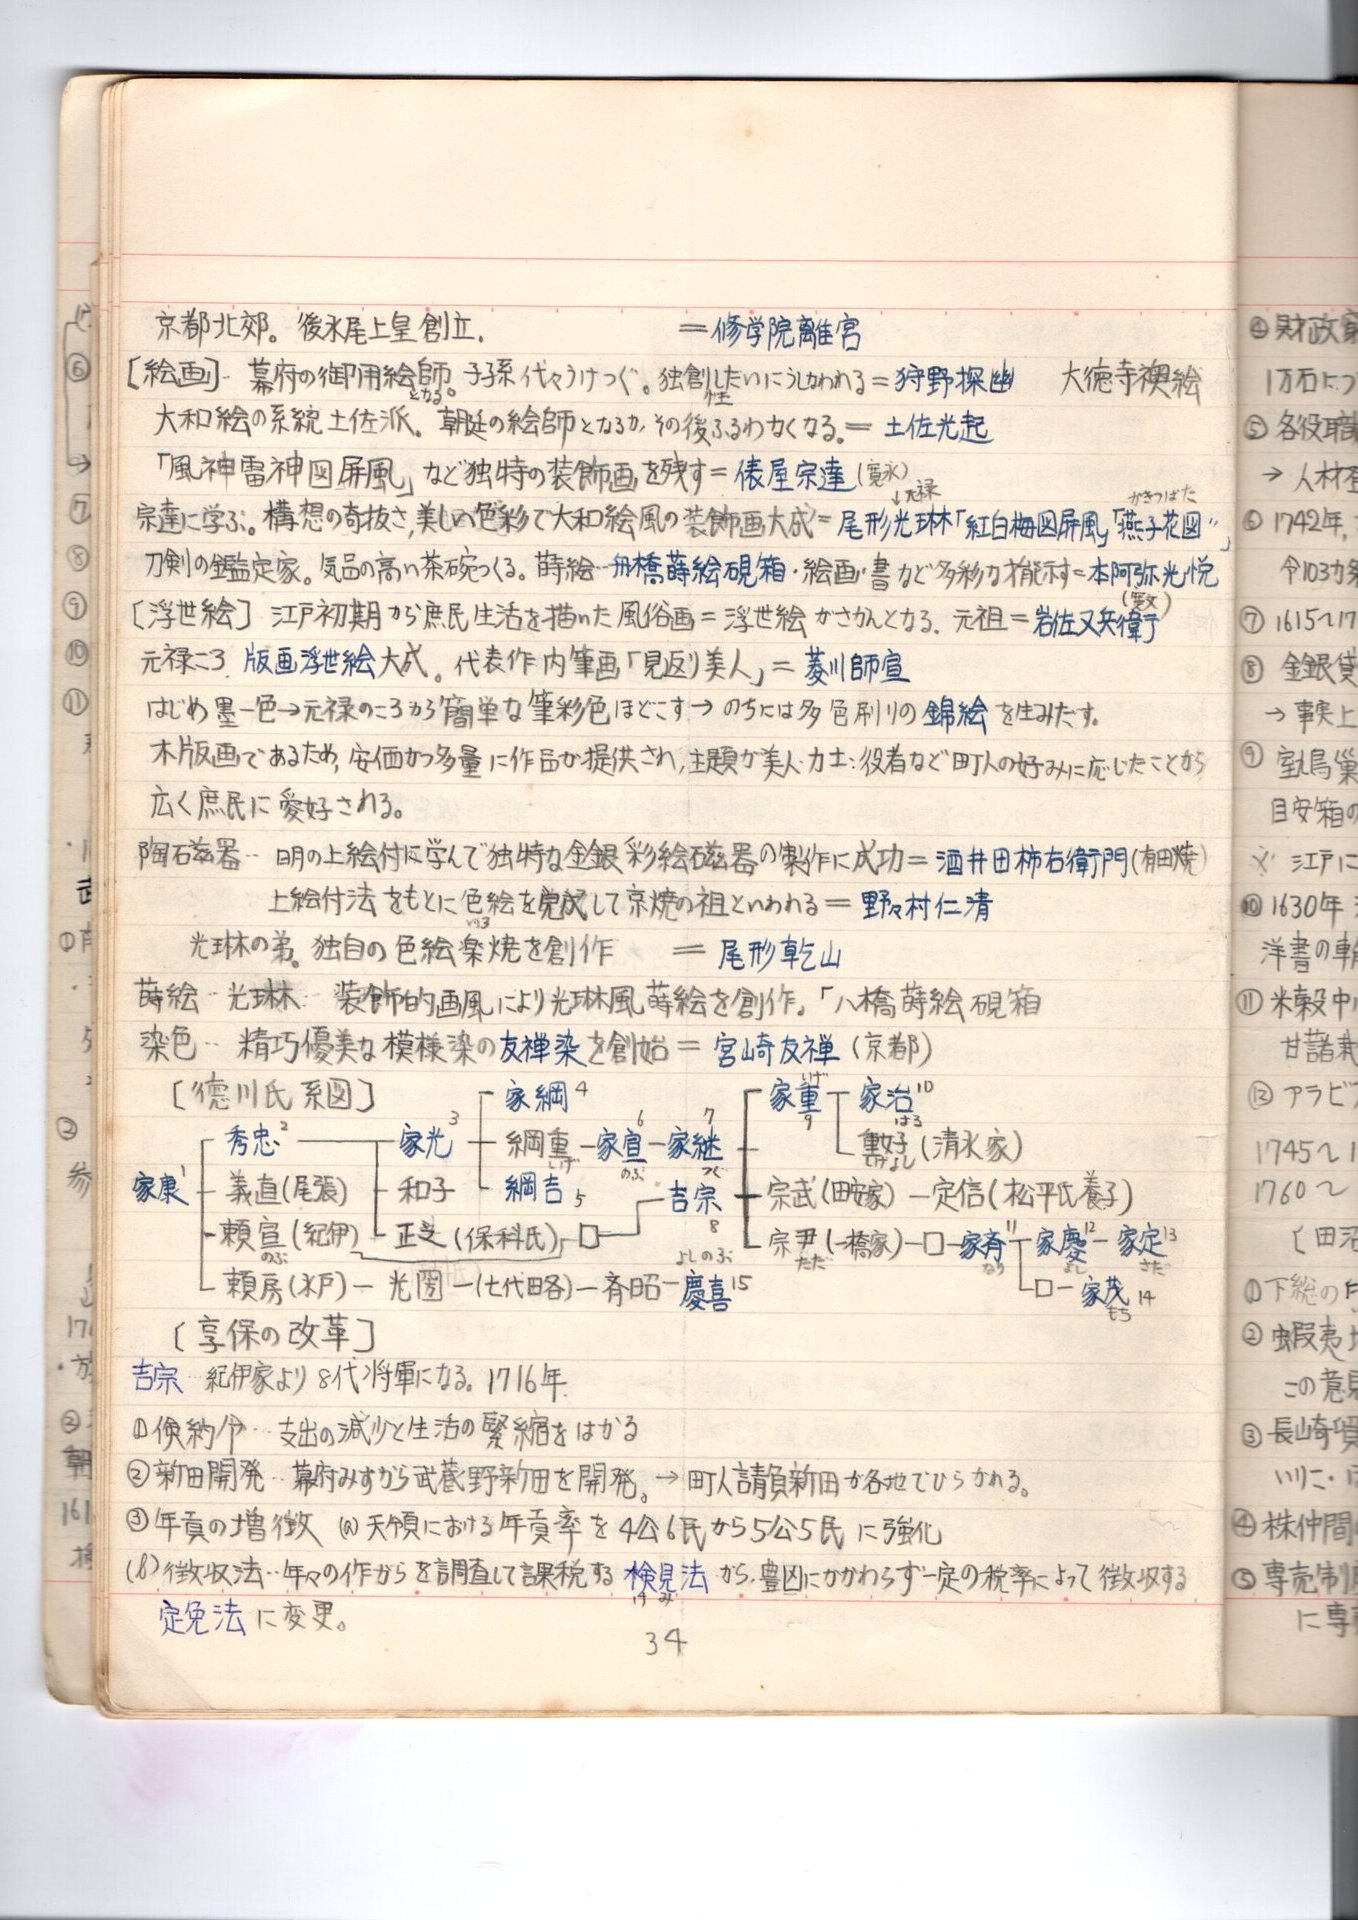 京都北郊。後水尾上皇創立. ＝修学院離宮
[絵画]‥ 幕府の御用絵師となる。子子孫代々うけつぐ。独創性したいにうしなわれる＝狩野探幽 大徳寺襖絵
大和絵の系統土佐派。朝廷の絵師となるが,その後ふるわなくなる.＝ 土佐光起
「風神雷神図屏風」など独特の装飾画を残す＝俵屋宗達(寛永)
↓元禄 かきつばた
宗達に学ぶ。構想の奇抜さ,美しい色彩で大和絵風の装飾画大成＝尾形光琳「紅白梅図屏風」「燕子花図」
刀剣の鑑定家。気品の高い茶碗つくる。蒔絵‥舟橋蒔絵硯箱・絵画・書など多彩な才能示す＝本阿弥光悦
[浮世絵] 江戸初期から庶民生活を描いた風俗画＝浮世絵がさかんとなる. 元祖＝岩佐又兵衛
元禄ころ 版画浮世絵大成。代表作肉筆画「見返り美人」＝菱川師宣
はじめ墨一色→元禄のころから簡単な筆彩色ほどこす→のちには多色刷りの錦絵を生みだす。
木版画であるため,安価かつ多量に作品が提供され,主題が美人・力士・役者など町人の好みに応じたことから
広く庶民に愛好される。
陶磁器‥ 明の上絵付に学んで独特な金銀彩絵磁器の製作に成功＝酒井田柿右衛門(有田焼)
上絵付法をもとに色絵を完成して京焼の祖といわれる＝野々村仁清
光琳の弟。独自の色絵楽焼を創作 ＝尾形乾山
蒔絵‥光琳‥ 装飾的画風により光琳風蒔絵を創作。「八橋蒔絵硯箱
染色‥ 精巧優美な模様染の友禅染を創始＝宮崎友禅(京都)
[徳川氏系図] 家綱4 家重9 家治10
秀忠2 家光3 綱重 家宣6 家継7 重好(清水家)
家康1 義直(尾張) 和子 綱吉5 吉宗8 宗武(田安家)－定信(松平氏養子)
頼宣(紀伊) 正之(保科氏) □ 宗尹(一橋家)－□－家斉11 家慶12－家定13
頼房(水戸)－光圀－(七代略)－斉昭－慶喜15 □－家茂14
[享保の改革]
吉宗 紀伊家より8代将軍になる。1716年.
①倹約令‥ 支出の減少と生活の緊縮をはかる
②新田開発‥幕府みずから武蔵野新田を開発。→町人請負新田が各地でひらかれる。
③年貢の増徴 (a)天領における年貢率を4公6民から5公5民に強化
(b)徴収法‥年々の作がらを調査して課税する検見法から,豊凶にかかわらず一定の税率によって徴収する
けみ
定免法に変更。
34
④財政
1万石につ
⑤各役職
→人材
⑥1742年,
令103カ条
⑦1615〜17
⑧金銀貸
→事実上
⑨室鳩巣
目安箱の
江戸に
⑩1630年
洋書の輸
⑪米穀中
甘藷栽
⑫アラビア
1745〜1
1760〜
[田沼
①下総の印
②蝦夷地
この意見
③長崎貿
いりこ・ほ
④株仲間
⑤専売制
に専売